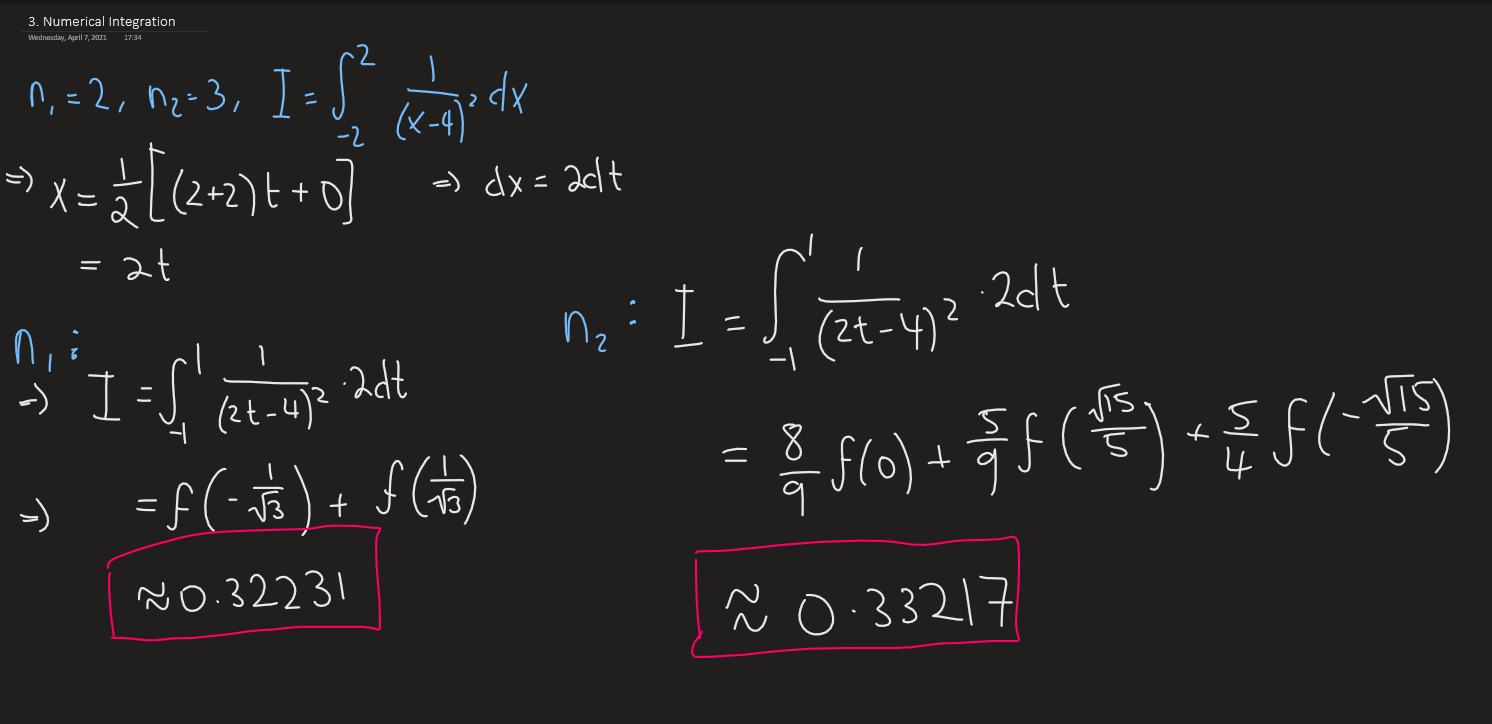 3. Numerical Integration
Wednesday, April 7, 2021 17:34
n₁ = 2, n₂ = 3, I = ∫₋₂² 1/(x-4)² dx
⇒ x = 1/2 [(2+2)t + 0] ⇒ dx = 2dt
= 2t
n₁ :
⇒ I = ∫₋₁¹ 1/(2t-4)² · 2dt
⇒ = f(-1/√3) + f(1/√3)
≈ 0.32231
n₂ : I = ∫₋₁¹ 1/(2t-4)² · 2dt
= 8/9 f(0) + 5/9 f(√15/5) + 5/4 f(-√15/5)
≈ 0.33217